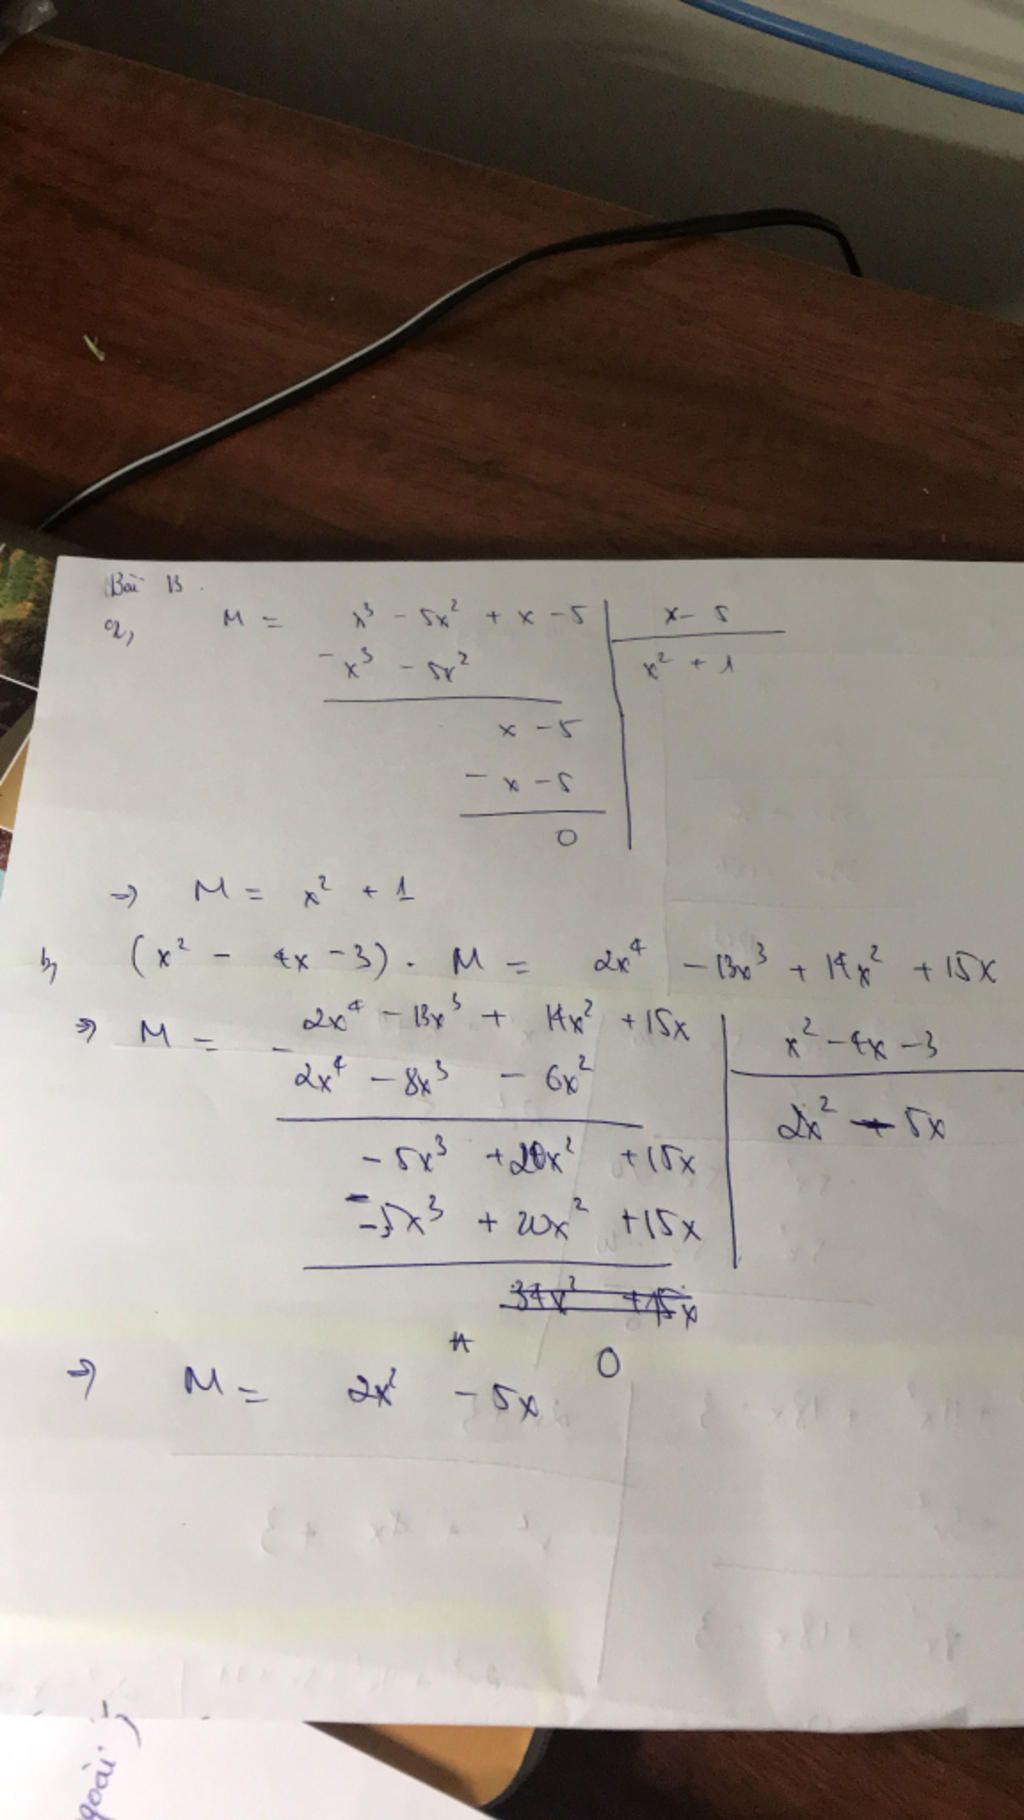 Bài 13.
a, M = x³ - 5x² + x - 5 | x - 5
- x³ - 5x² | x² + 1
x - 5
- x - 5
0
=> M = x² + 1
b, (x² - 4x - 3) . M = 2x⁴ - 13x³ + 14x² + 15x
=> M = 2x⁴ - 13x³ + 14x² + 15x | x² - 4x - 3
- 2x⁴ - 8x³ - 6x² | 2x² - 5x
- 5x³ + 20x² + 15x
- -5x³ + 20x² + 15x
34x² + 15x
0
=> M = 2x² - 5x
goài